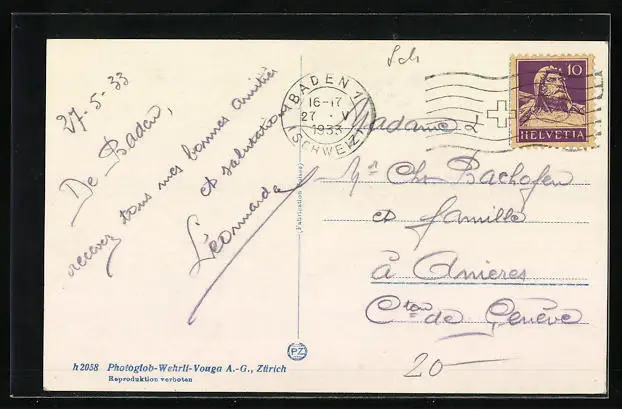 27-5-33
De Baden,
recevez tous mes bonnes amitiés
et salutations
Léonarda
Sch
BADEN 1
16-17
27 · V
1933
(SCHWEIZ)
10
HELVETIA
Madame &
Mr Ch. Bachofen
et famille
à Anières
Cton de Genève
20-
(Fabrication Suisse)
PZ
h2058 Photoglob-Wehrli-Vouga A.-G., Zürich
Reproduktion verboten